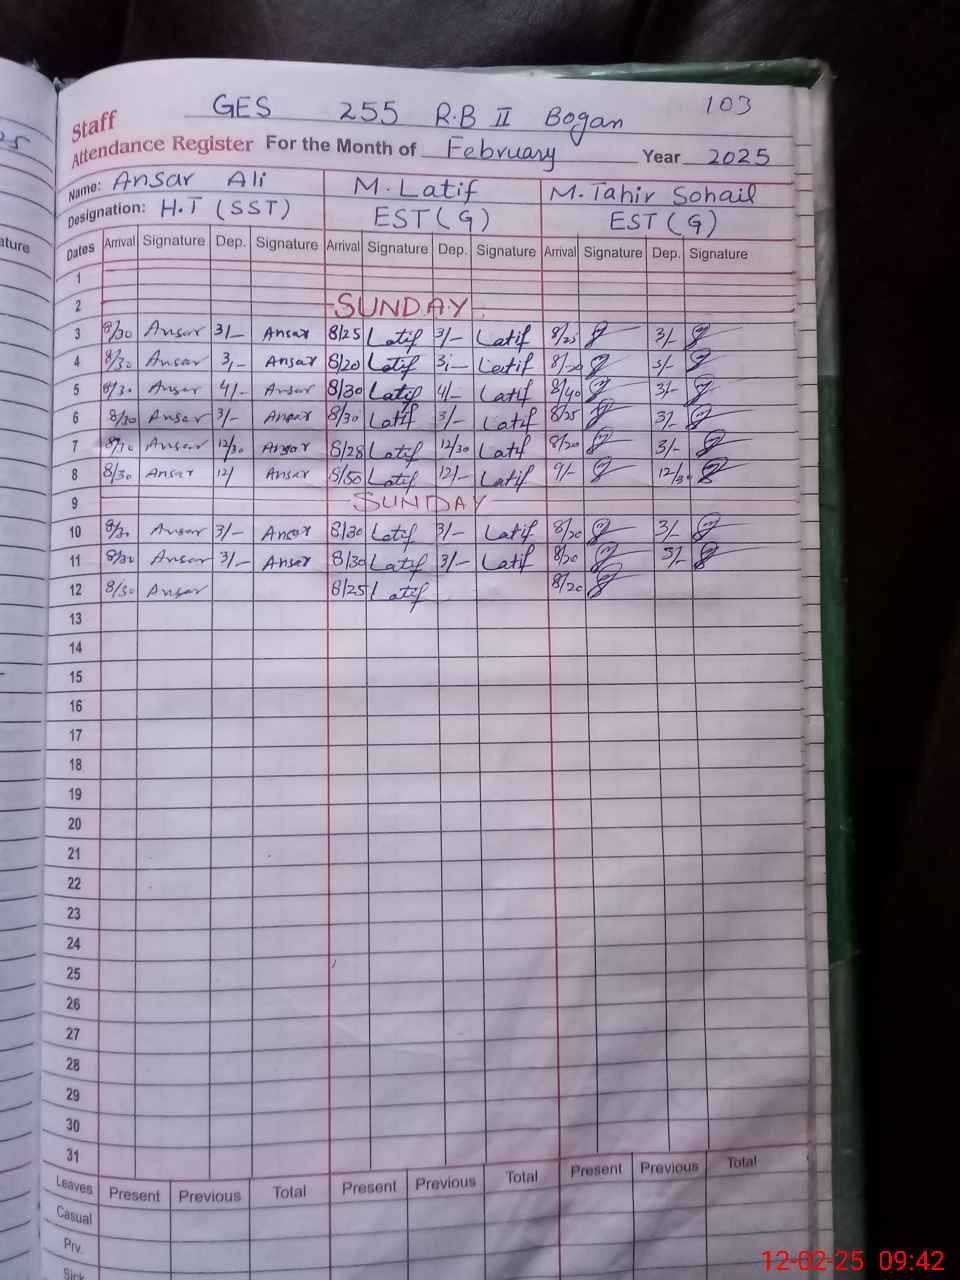 25
ature
103
GES 255 R.B II Bogan
Staff
Attendance Register For the Month of February Year 2025
Name: Ansar Ali M. Latif M. Tahir Sohail
Designation: H.T (SST) EST (G) EST (G)
Dates Arrival Signature Dep. Signature Arrival Signature Dep. Signature Arrival Signature Dep. Signature
1
2 SUNDAY
3 8/30 Ansar 3/- Ansar 8/25 Latif 3/- Latif 8/25 3/-
4 8/30 Ansar 3,- Ansar 8/20 Latif 3,- Latif 8/20 3/-
5 8/30 Ansar 4/- Ansar 8/30 Latif 4/- Latif 8/40 3/-
6 8/30 Ansar 3/- Ansar 8/30 Latif 3/- Latif 8/25 3/-
7 Ansar 12/30 Ansar 8/28 Latif 12/30 Latif 8/20 3/-
8 8/30 Ansar 12/ Ansar 8/50 Latif 12/- Latif 9/- 12/30
9 SUNDAY
10 8/30 Ansar 3/- Ansar 8/30 Latif 3/- Latif 8/20 3/-
11 8/30 Ansar 3/- Ansar 8/30 Latif 3/- Latif 8/20 3/-
12 8/30 Ansar 8/25 Latif 8/20
13
14
15
16
17
18
19
20
21
22
23
24
25
26
27
28
29
30
31
Leaves Present Previous Total Present Previous Total Present Previous Total
Casual
Prv.
Sick
12-02-25 09:42